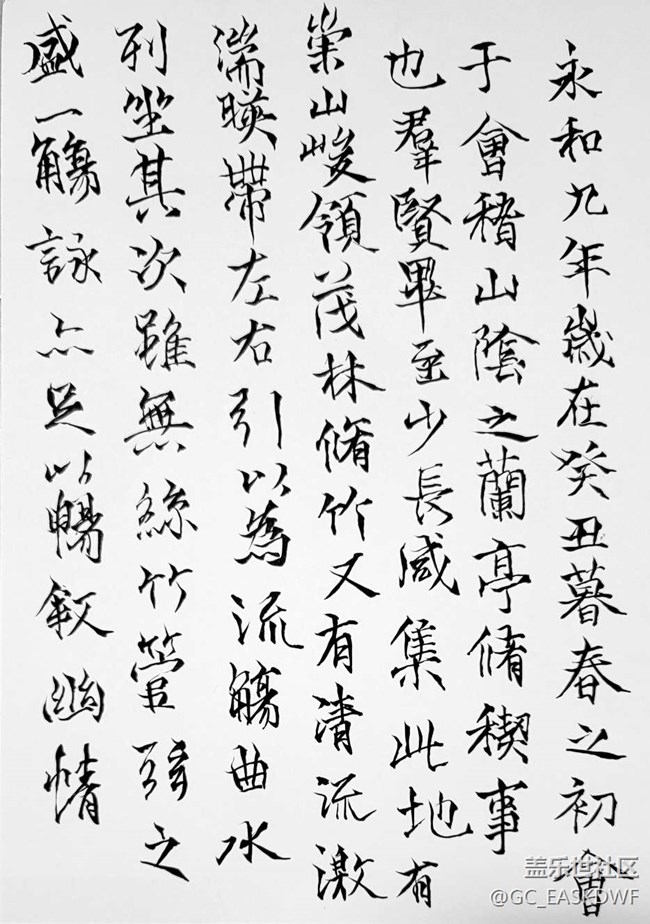 永和九年歲在癸丑暮春之初會
于會稽山陰之蘭亭脩稧事
也羣賢畢至少長咸集此地有
崇山峻領茂林脩竹又有清流激
湍暎帶左右引以為流觴曲水
列坐其次雖無絲竹管弦之
盛一觴詠亦足以暢敘幽情
盖乐世社区
@GC_EASKDWF